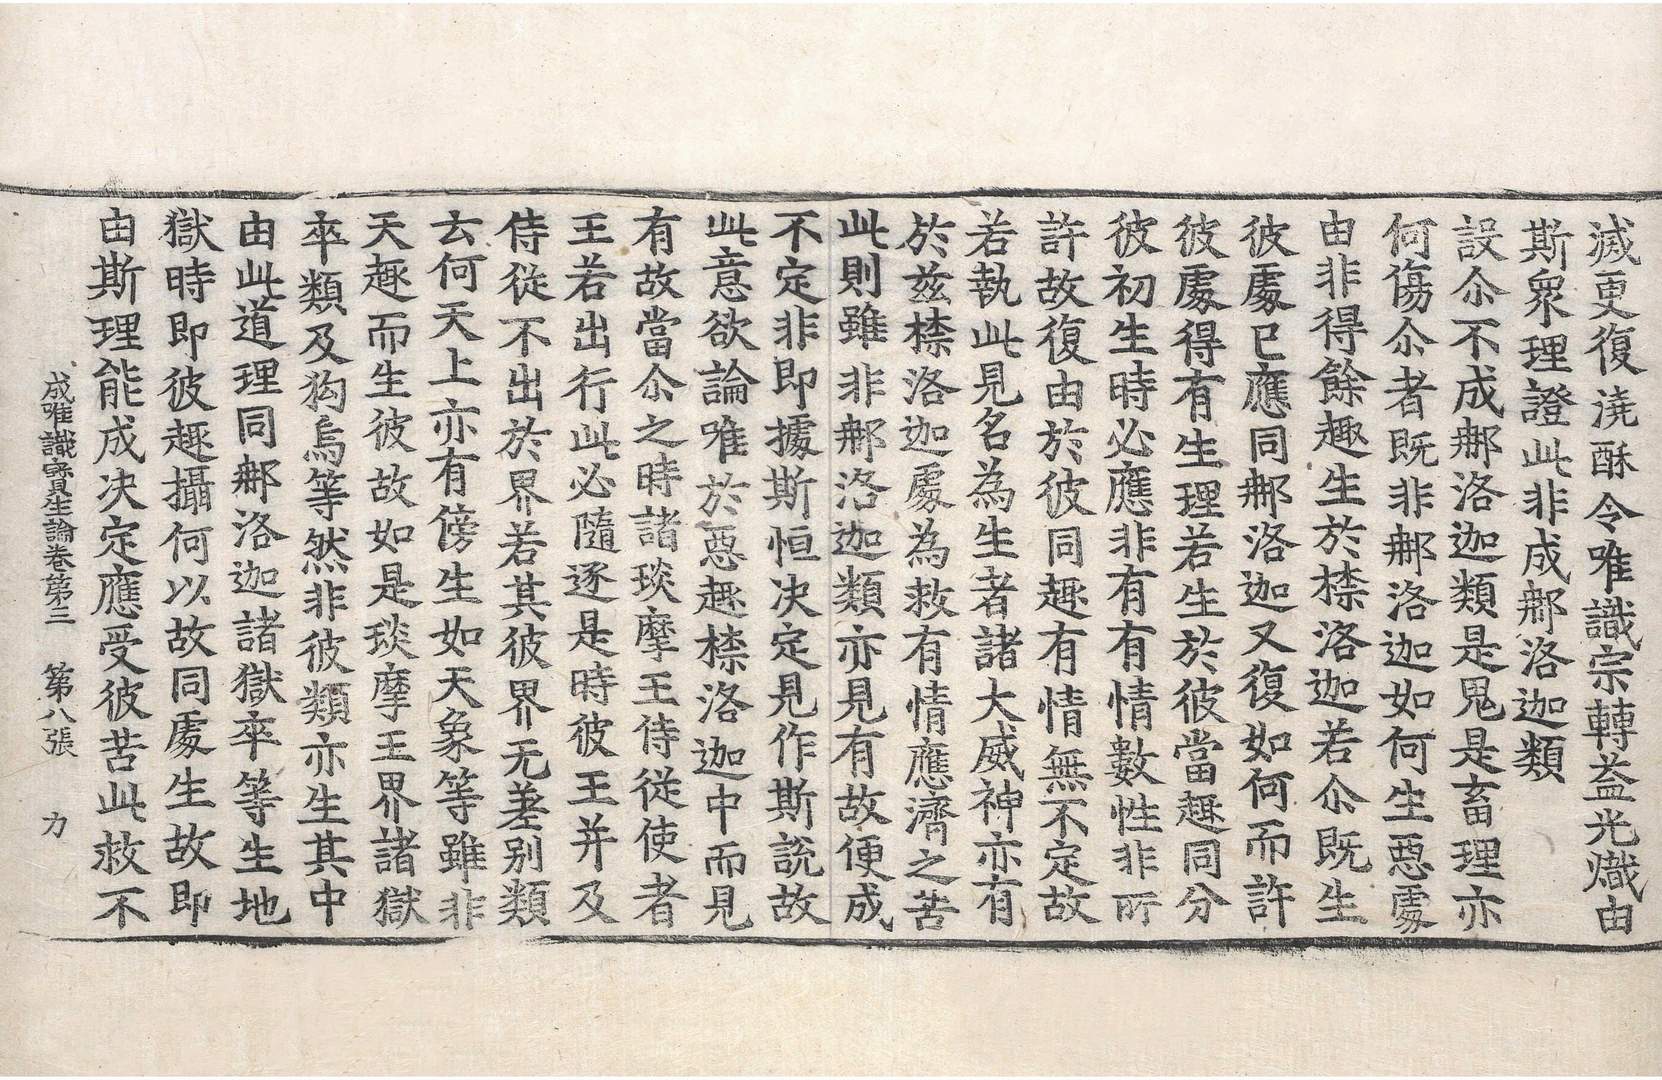 滅更復澆酥令唯識宗轉益光熾由
斯衆理證此非成㮈洛迦類
設尒不成㮈洛迦類是鬼是畜理亦
何傷尒者既非㮈洛迦如何生惡處
由非得餘趣生於㮈洛迦若尒既生
彼處已應同㮈洛迦又復如何而許
彼處得有生理若生於彼當趣同分
彼初生時必應非有有情數性非所
許故復由於彼同趣有情無不定故
若執此見名為生者諸大威神亦有
於兹㮈洛迦處為救有情應濟之苦
此則雖非㮈洛迦類亦見有故便成
不定非即據斯恒決定見作斯説故
此意欲論唯於惡趣㮈洛迦中而見
有故當尒之時諸琰摩王侍従使者
王若出行此必隨逐是時彼王并及
侍従不出於界若其彼界无差别類
云何天上亦有傍生如天象等雖非
天趣而生彼故如是琰摩王界諸獄
卒類及狗烏等然非彼類亦生其中
由此道理同㮈洛迦諸獄卒等生地
獄時即彼趣攝何以故同處生故即
由斯理能成決定應受彼苦此救不
成唯識寶生論卷第三　第八張　力